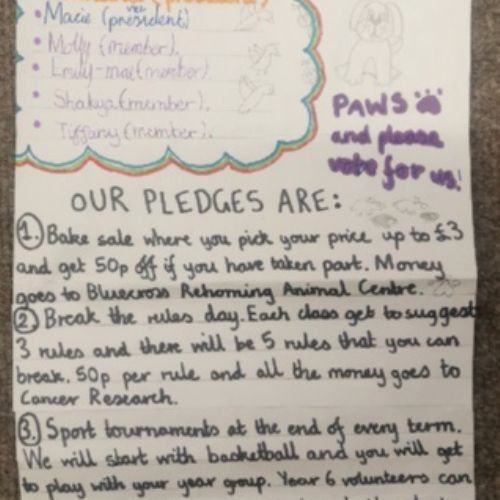 • Macie (vice president)
• Molly (member).
• Emily-mae (member).
• Shakya (member).
• Tiffany (member).
PAWS
and please
vote for us!
OUR PLEDGES ARE:
1. Bake sale where you pick your price up to £3
and get 50p off if you have taken part. Money
goes to Bluecross Rehoming Animal Centre.
2. Break the rules day. Each class get to suggest
3 rules and there will be 5 rules that you can
break. 50p per rule and all the money goes to
Cancer Research.
3. Sport tournaments at the end of every term.
We will start with basketball and you will get
to play with your year group. Year 6 volunteers can